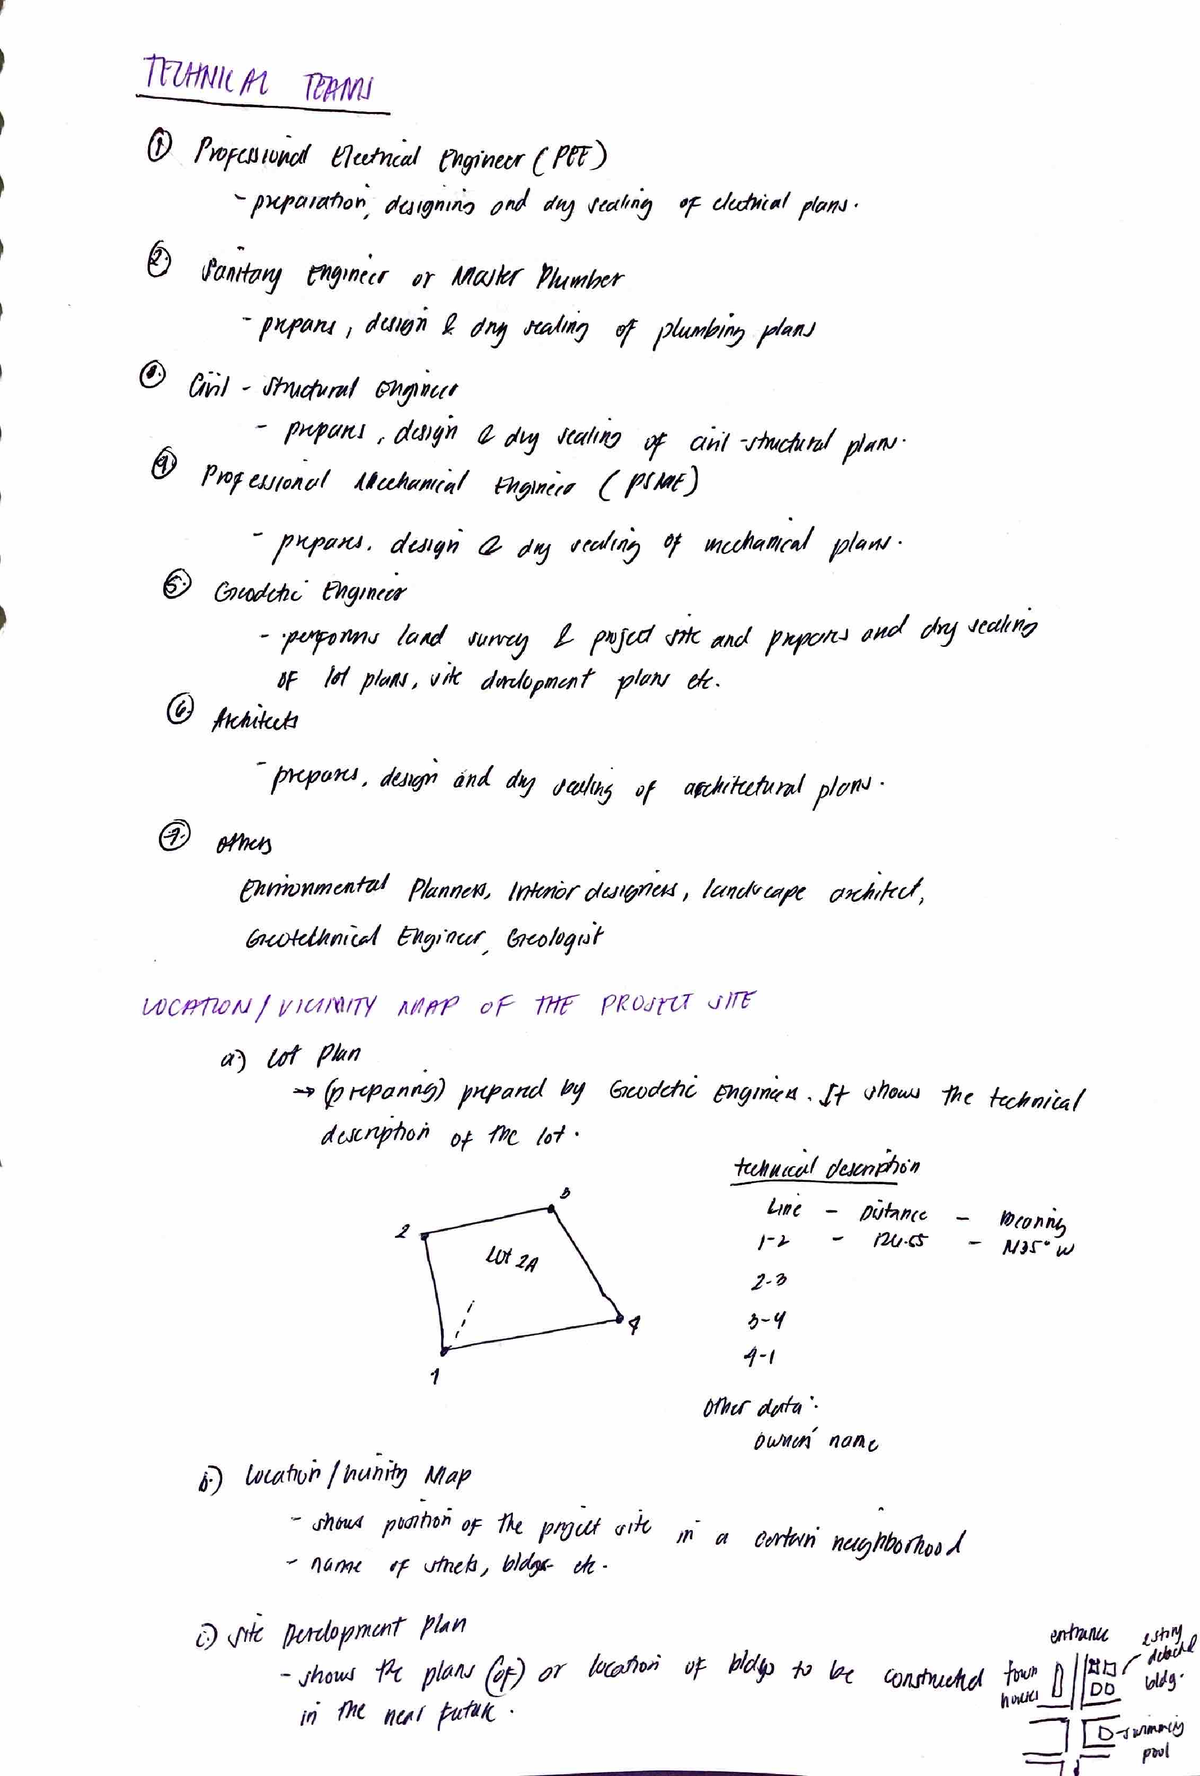 TECHNICAL TEAMS
1. Professional Electrical Engineer (PEE)
- preparation, designing and dry sealing of electrical plans.
2. Sanitary Engineer or Master Plumber
- prepares, design & dry sealing of plumbing plans
3. Civil - Structural Engineer
- prepares, design & dry sealing of civil-structural plans.
4. Professional Mechanical Engineer (PSME)
- prepares, design & dry sealing of mechanical plans.
5. Geodetic Engineer
- performs land survey & project site and prepares and dry sealing
of lot plans, site development plans etc.
6. Architects
- prepares, design and dry sealing of architectural plans.
7. Others
Environmental Planners, Interior designers, landscape architect,
Geotechnical Engineer, Geologist
LOCATION/VICINITY MAP OF THE PROJECT SITE
a.) Lot Plan
→ (preparing) prepared by Geodetic Engineers. It shows the technical
description of the lot.
technical description
Line - Distance - Bearing
1-2 - 124.55 - N35° W
2-3
3-4
4-1
2
3
Lot 2A
4
1
Other data:
owners' name
b.) Location/Vicinity Map
- shows position of the project site in a certain neighborhood
- name of streets, bldgs. etc.
c.) Site Development Plan
- shows the plans (of) or location of bldgs to be constructed
in the near future.
entrance
town
houses
bldg.
swimming
pool